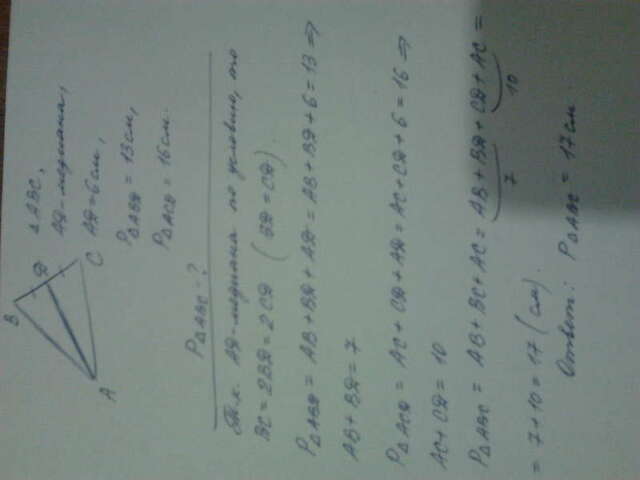 B
Д
A
C
△ABC,
АД-медиана,
АД=6см,
P△ABД = 13см,
P△ACД = 16см.
P△ABC-?
Т.к. АД-медиана по условию, то
BC = 2BД = 2CД ( BД = CД).
P△ABД = AB + BД + AД = AB + BД + 6 = 13 ⇒
AB + BД = 7
P△ACД = AC + CД + AД = AC + CД + 6 = 16 ⇒
AC + CД = 10
P△ABC = AB + BC + AC = AB + BД + CД + AC =
7 10
= 7 + 10 = 17 (см).
Ответ: P△ABC = 17см.